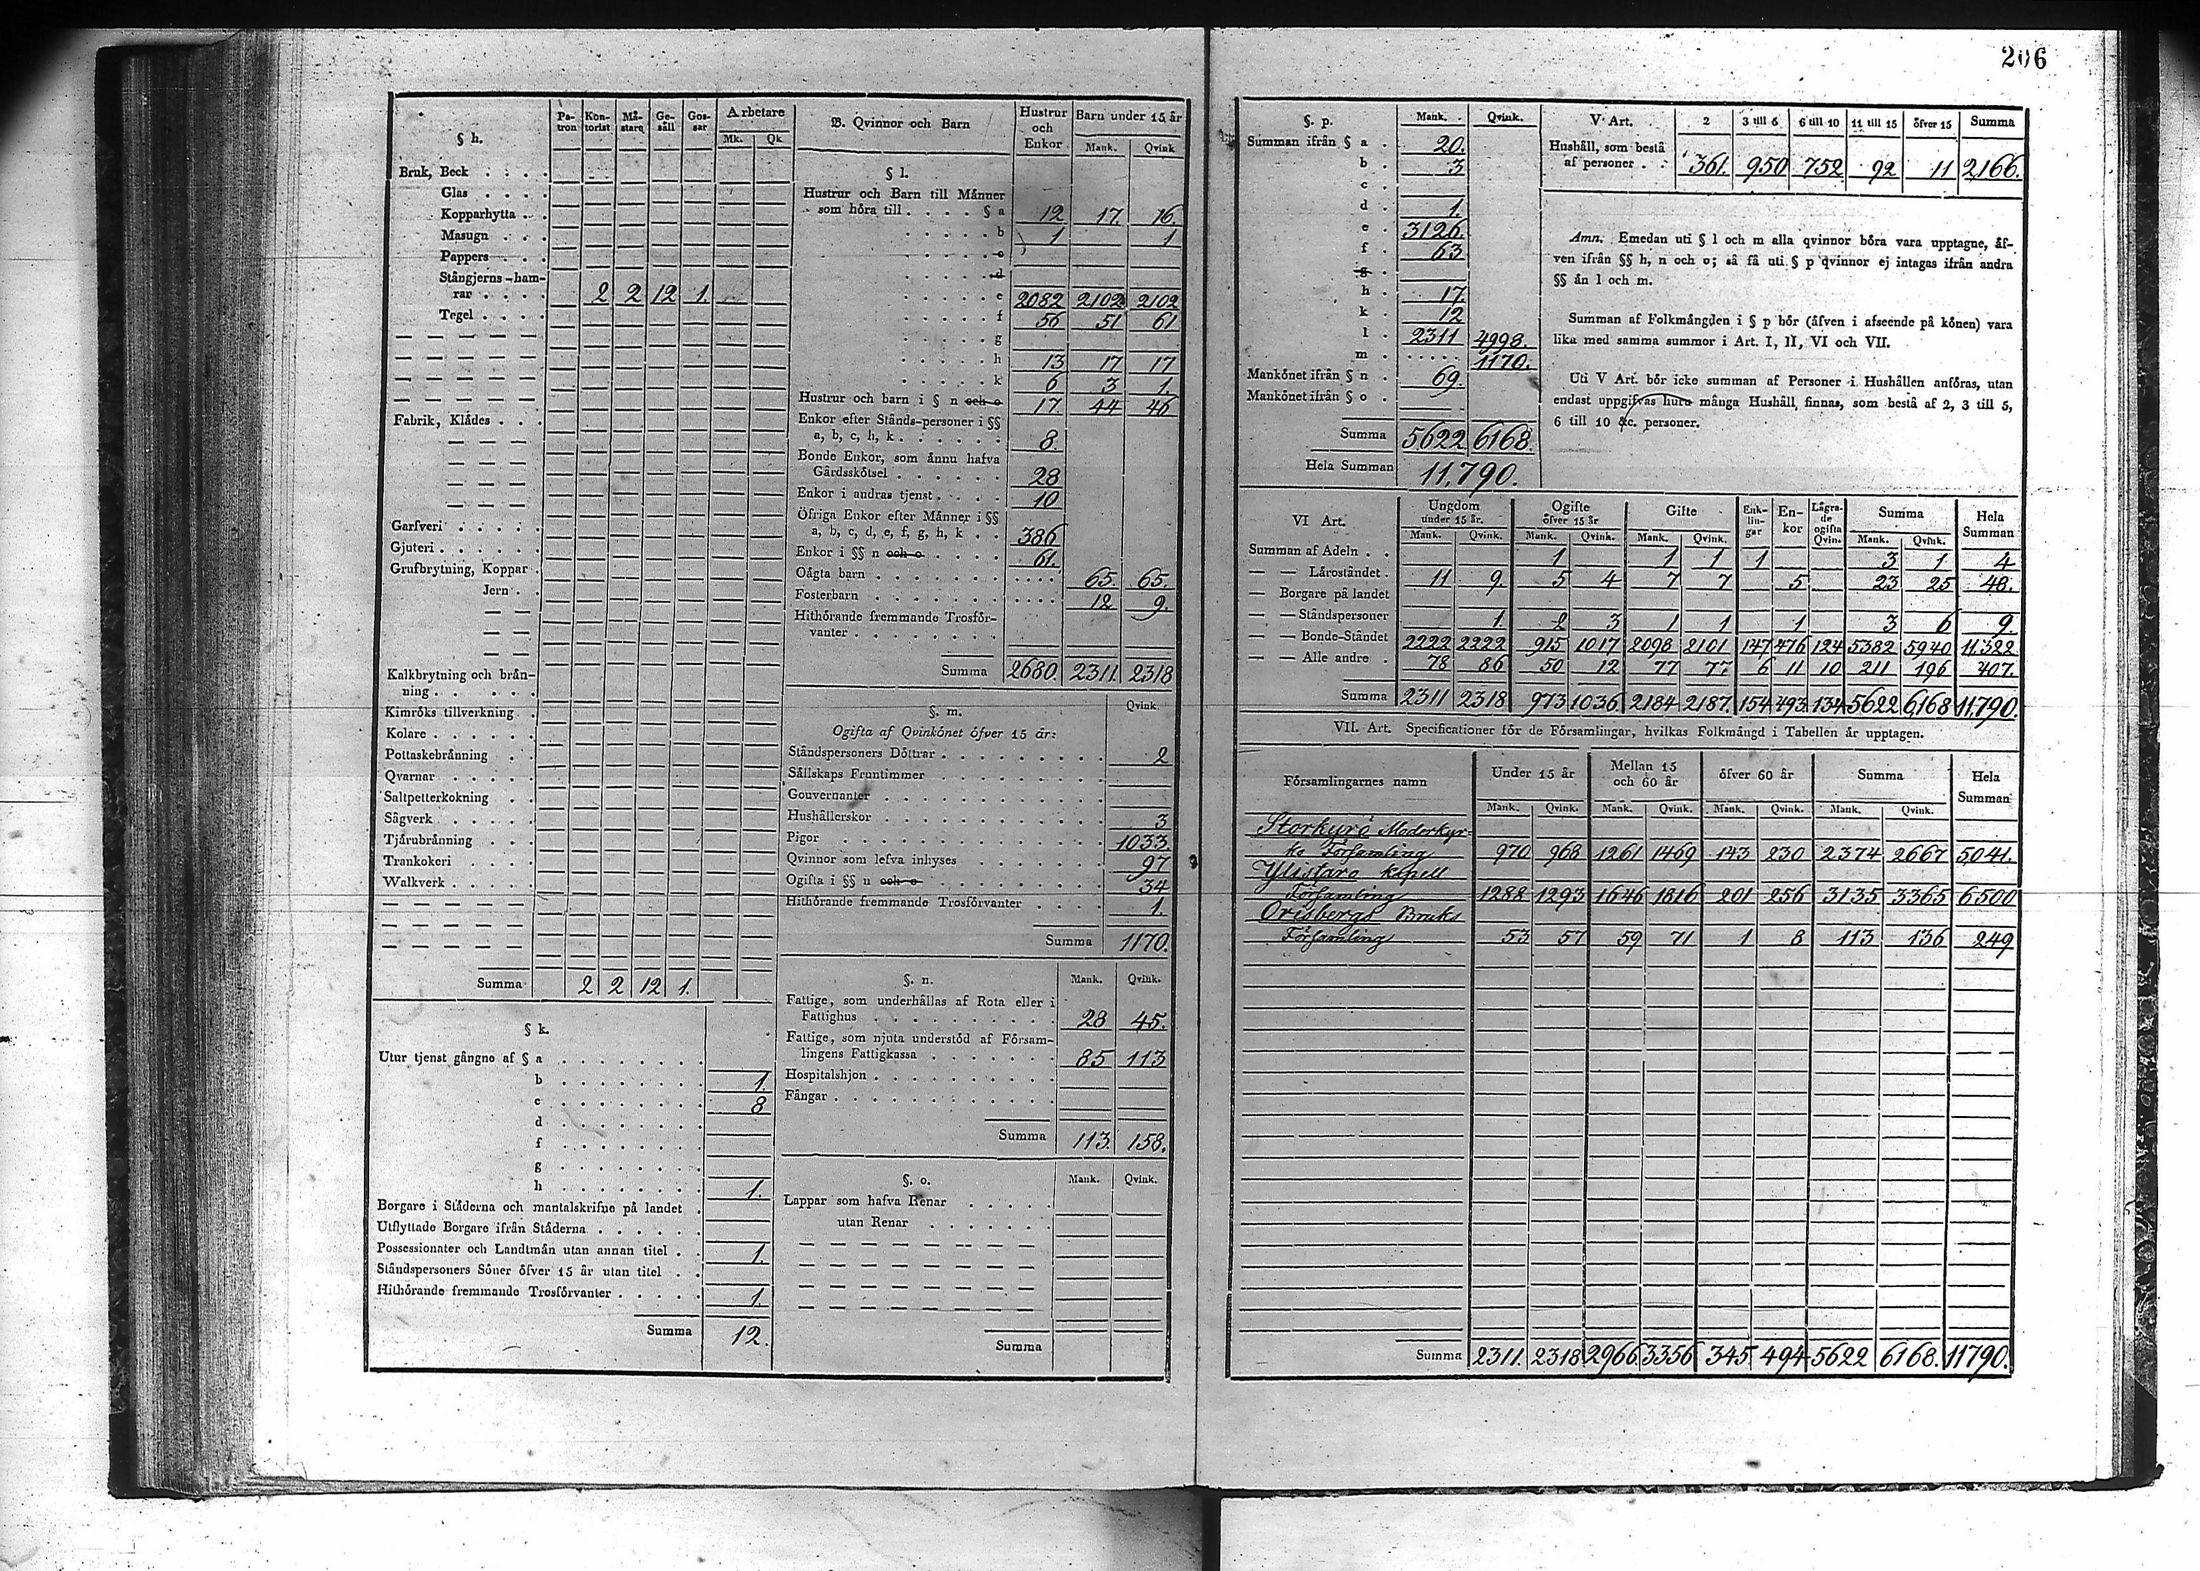 206
§ h.
Pa-tron Kon-torist Mä-stare Ge-säll Gos-sar Arbetare
Mk. Qk
Bruk, Beck
Glas
Kopparhytta
Masugn
Pappers
Stångjerns-ham-
rar 2 2 12 1.
Tegel
Fabrik, Klädes
Garfveri
Gjuteri
Grufbrytning, Koppar
Jern
Kalkbrytning och brän-
ning
Kimröks tillverkning
Kolare
Pottaskebränning
Qvarnar
Saltpetterkokning
Sågverk
Tjärubränning
Trankokeri
Walkverk
Summa 2 2 12 1.
§ k.
Utur tjenst gångne af § a
b 1.
c 8
d
f
g
h 1.
Borgare i Städerna och mantalskrifne på landet
Utflyttade Borgare ifrån Städerna
Possessionater och Landtmän utan annan titel 1.
Ståndspersoners Söner öfver 15 år utan titel
Hithörande fremmande Trosförvanter 1.
Summa 12.
B. Qvinnor och Barn Hustrur och Enkor Barn under 15 år
Mank. Qvink
§ l.
Hustrur och Barn till Männer
som höra till § a 12 17. 16.
b 1 1
c
d
e 2082 2102 2102
f 56 51 61
g
h 13 17 17
k 6 3 1.
Hustrur och barn i § n och o 17. 44 46
Enkor efter Stånds-personer i §§
a, b, c, h, k 8.
Bonde Enkor, som ännu hafva
Gårdsskötsel 28
Enkor i andras tjenst 10
Öfriga Enkor efter Männer i §§
a, b, c, d, e, f, g, h, k 386
Enkor i §§ n och o 61.
Oägta barn 65. 65.
Fosterbarn 12 9.
Hithörande fremmande Trosför-
vanter
Summa 2680. 2311. 2318
§. m. Qvink.
Ogifta af Qvinkönet öfver 15 år:
Ståndspersoners Döttrar 2
Sällskaps Fruntimmer
Gouvernanter
Hushållerskor 3
Pigor 1033.
Qvinnor som lefva inhyses 97
Ogifta i §§ n och o 34
Hithörande fremmande Trosförvanter 1.
Summa 1170.
§. n. Mank. Qvink.
Fattige, som underhållas af Rota eller i
Fattighus 28 45.
Fattige, som njuta understöd af Försam-
lingens Fattigkassa 85 113
Hospitalshjon
Fångar
Summa 113. 158.
§. o. Mank. Qvink.
Lappar som hafva Renar
utan Renar
Summa
§. p. Mank. Qvink.
Summan ifrån § a 20.
b 3
c
d 1.
e 3126.
f 63
g
h 17.
k 12
l 2311 4998.
m 1170.
Mankönet ifrån § n 69.
Mankönet ifrån § o
Summa 5622 6168.
Hela Summan 11,790.
V Art. 2 3 till 5 6 till 10 11 till 15 öfver 15 Summa
Hushåll, som bestå
af personer 361. 950 752 92 11 2166.
Anm. Emedan uti § l och m alla qvinnor böra vara upptagne, äf-
ven ifrån §§ h, n och o; så få uti § p qvinnor ej intagas ifrån andra
§§ än l och m.
Summan af Folkmängden i § p bör (äfven i afseende på könen) vara
lika med samma summor i Art. I, II, VI och VII.
Uti V Art. bör icke summan af Personer i Hushållen anföras, utan
endast uppgifvas huru många Hushåll finnas, som bestå af 2, 3 till 5,
6 till 10 &c. personer.
VI Art. Ungdom under 15 år. Ogifte öfver 15 år Gifte Enk-lin-gar En-kor Lägra-de ogifta Qvin. Summa Hela Summan
Mank. Qvink. Mank. Qvink. Mank. Qvink. Mank. Qvink.
Summan af Adeln 1 1 1 1 3 1 4
— — Läroståndet 11 9. 5 4 7 7 5 23 25 48.
— Borgare på landet
— — Ståndspersoner 1. 2 3 1 1 1 3 6 9.
— — Bonde-Ståndet 2222 2222 915 1017 2098 2101 147 476 124 5382 5940 11.322
— — Alle andre 78 86 50 12 77 77. 6 11 10 211 196 407.
Summa 2311 2318 973 1036 2184 2187. 154 493 134 5622 6168 11,790.
VII. Art. Specificationer för de Församlingar, hvilkas Folkmängd i Tabellen är upptagen.
Församlingarnes namn Under 15 år Mellan 15 och 60 år öfver 60 år Summa Hela Summan
Mank. Qvink. Mank. Qvink. Mank. Qvink. Mank. Qvink.
Storkyro Moderkyr-
ko Församling 970 968 1261 1469 143 230 2374 2667 5041.
Ylistaro Kapell
Församling 1288 1293 1646 1816 201 256 3135 3365 6500
Orisbergs Bruks
Församling 53 57 59 71 1 8 113 136 249
Summa 2311. 2318 2966. 3356 345 494 5622 6168. 11790.